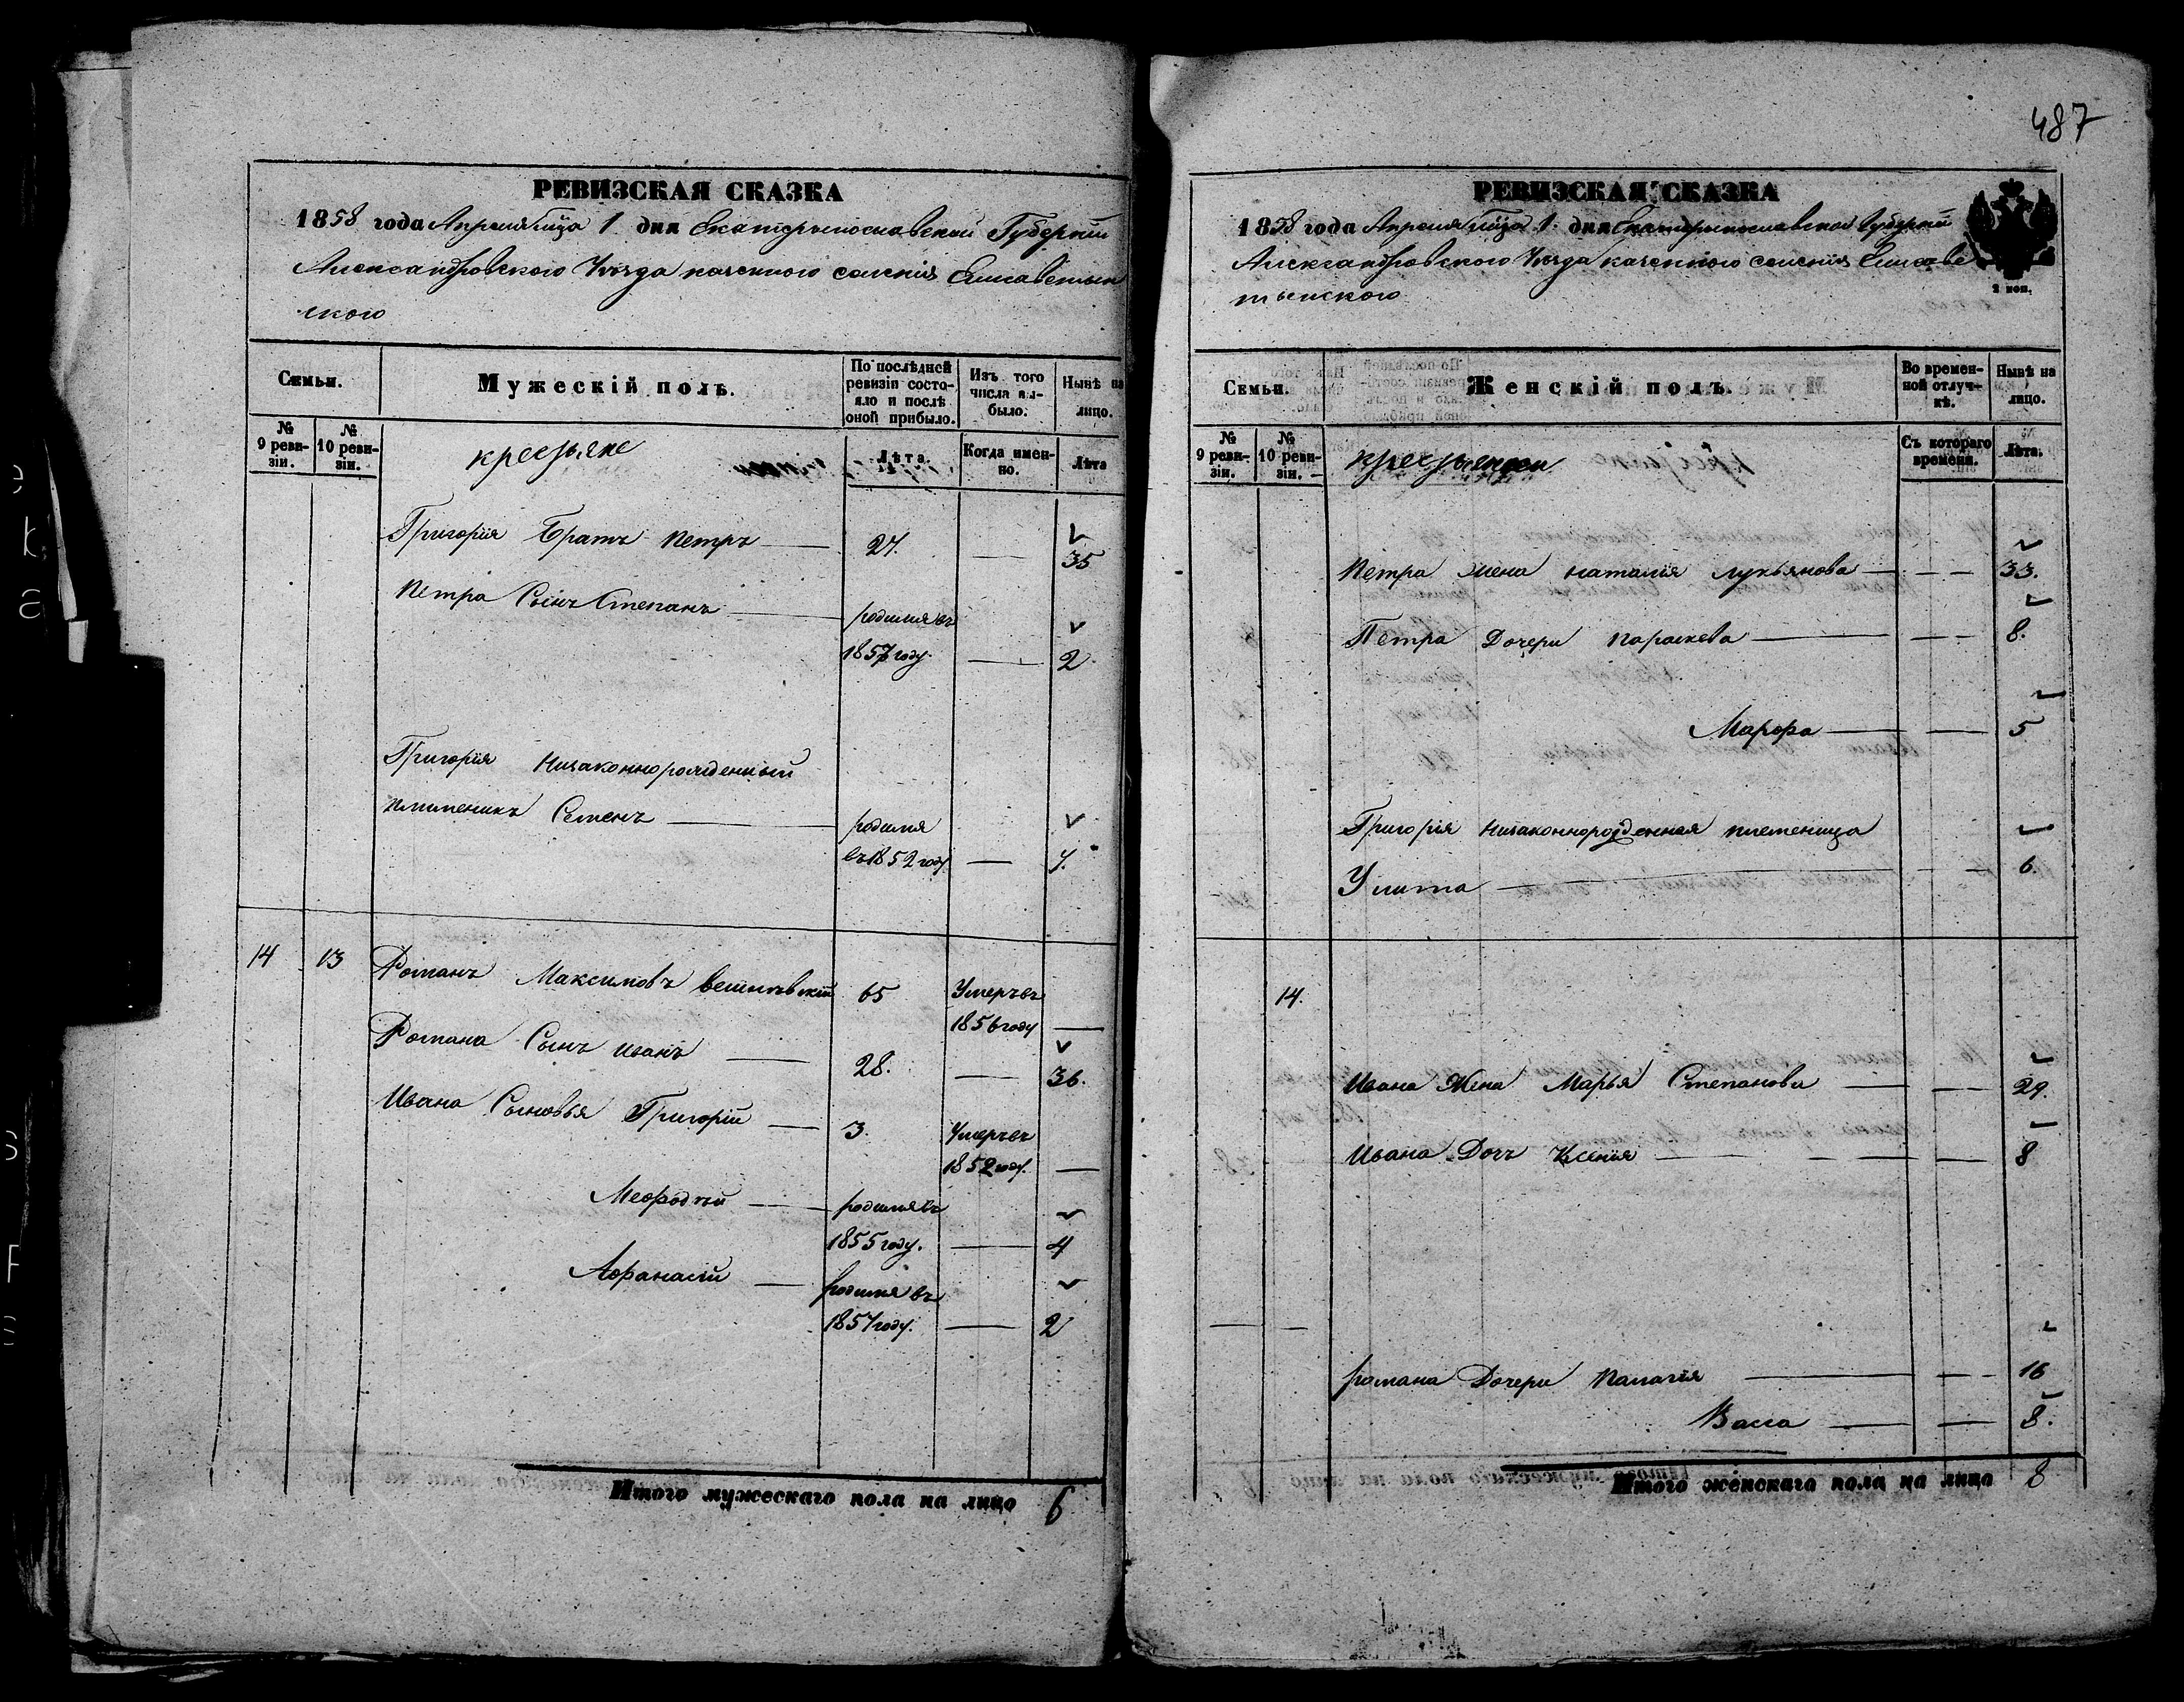 487
РЕВИЗСКАЯ СКАЗКА
1858 года Апреля м̃ца 1 дня Екатеринославской Губернїи
Александровскаго Уѣзда казенного селенія Елисаветин
ского
Семьи.
Мужескій полъ.
По послѣдней ревизіи состояло и послѣ оной прибыло.
Изъ того числа выбыло.
Нынѣ на лицо.
№ 9 ревизіи.
№ 10 ревизіи.
крестьяне
Лѣта
Когда именно.
Лѣта
Григорія Братъ Петръ 27. 35
Петра Сынъ Степанъ родился въ
1857 году. 2
Григорія Низаконнорожденный
племеникъ Семенъ родился
въ 1852 году 7.
14 13 Романъ Максимовъ 65 Умеръ въ
1856 году
Романа Сынъ Иванъ 28. 36.
Ивана Сыновья Григорій 3. Умеръ въ
1852 году.
Мефодій родился въ
1855 году. 4
Афанасій родился въ
1857 году. 2
Итого мужескаго пола на лицо 6
РЕВИЗСКАЯ СКАЗКА
1858 года Апреля м̃ца 1. дня Екатеринославской Губернїи
Александровского Уѣзда казенного селенія Елисаве
тынского
2 коп.
Семьи.
Женскій полъ.
Во временной отлучкѣ.
Нынѣ на лицо.
№ 9 ревизіи.
№ 10 ревизіи.
крестьянки
Съ котораго времени.
Лѣта.
Петра жена Наталія Лукьянова 33.
Петра Дочери Параскева 8.
Марфа 5
Григорія Низаконнорожденная племеница
Улита 6.
14.
Ивана Жена Марья Степанова 29.
Ивана Дочь Ксенія 8
Романа Дочери Палагія 16
Васса 8.
Итого женскаго пола на лицо 8